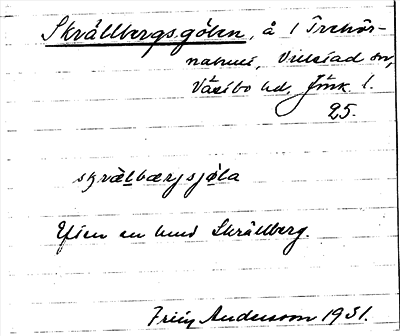 Skrällbergsgölen, å 1 Trehör-
nahult, Villstad sn,
Västbo hd, Jönk. l.
25.
skrälbærjsjøla
Efter en lund Skrällberg.
Frieig Andersson 1931.